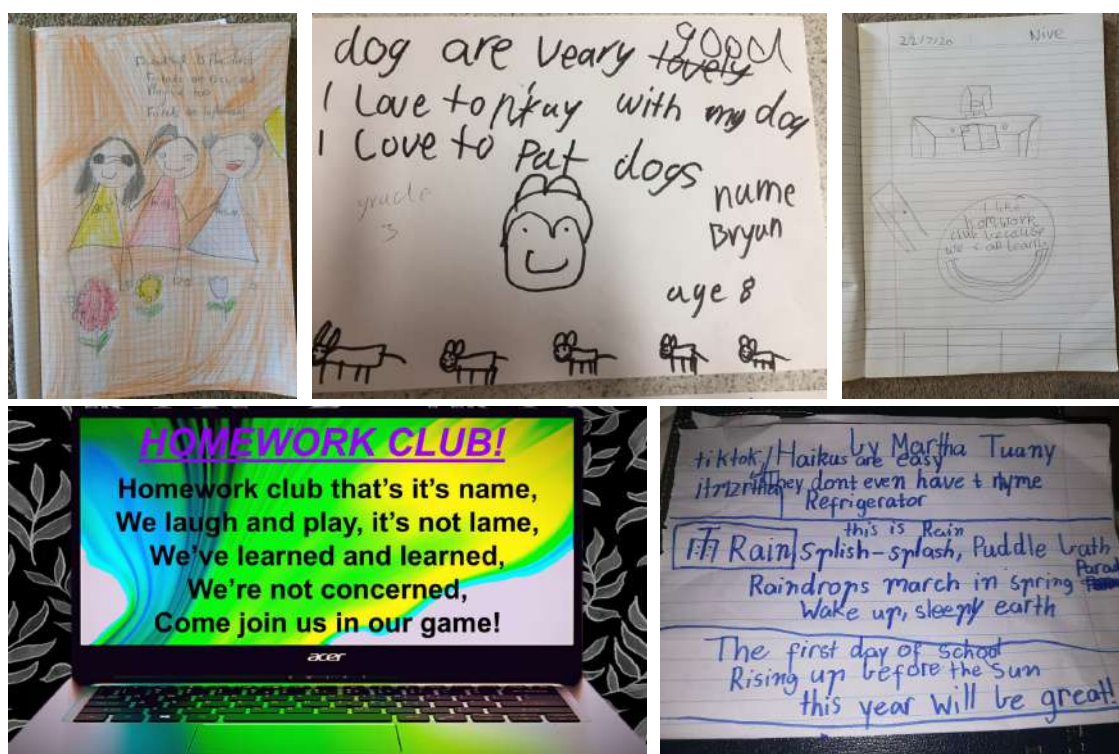 Friends
dog are veary good
lovely
I Love to play with my dog
I Love to pat dogs
grade
3
name
Bryan
age 8
22/7/20
Nive
I like
homework
club because
we all learn
HOMEWORK CLUB!
Homework club that's it's name,
We laugh and play, it's not lame,
We've learned and learned,
We're not concerned,
Come join us in our game!
acer
by Martha Tuany
tiktok / Haikus are easy
They dont even have t rhyme
Refrigerator
this is Rain
雨 Rain Splish-splash, Puddle bath
Raindrops march in spring Parad
Wake up, sleepy earth
The first day of school
Rising up before the sun
this year will be great!